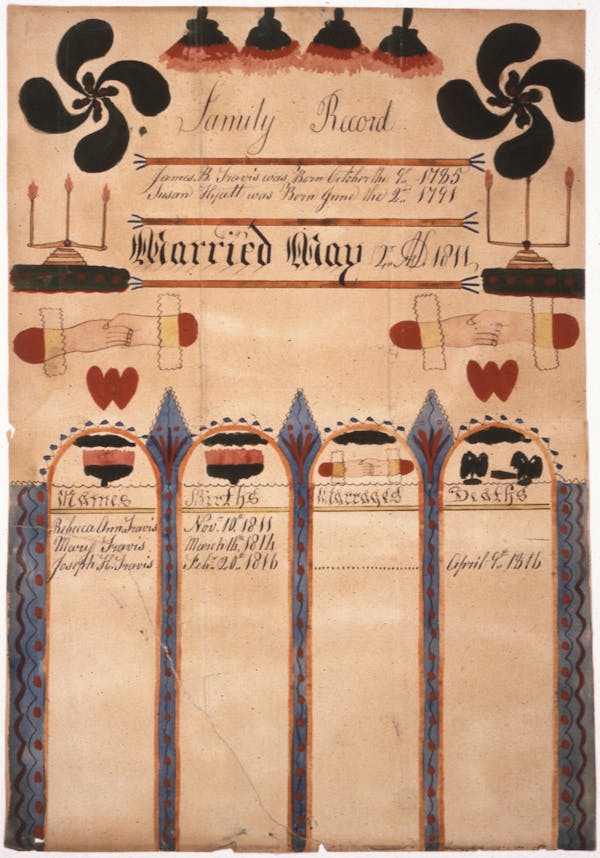 Family Record
James. B. Travis was Born October the 9th 1785
Susan Hyatt was Born June the 2nd 1791
Married May 2nd AD 1811
Names Births Marrages Deaths
Rebeca Ann Travis Nov. 10th 1811
Mary Travis. March 14th 1814
Joseph H. Travis Feb. 20th 1816 .................... April 9th 1816